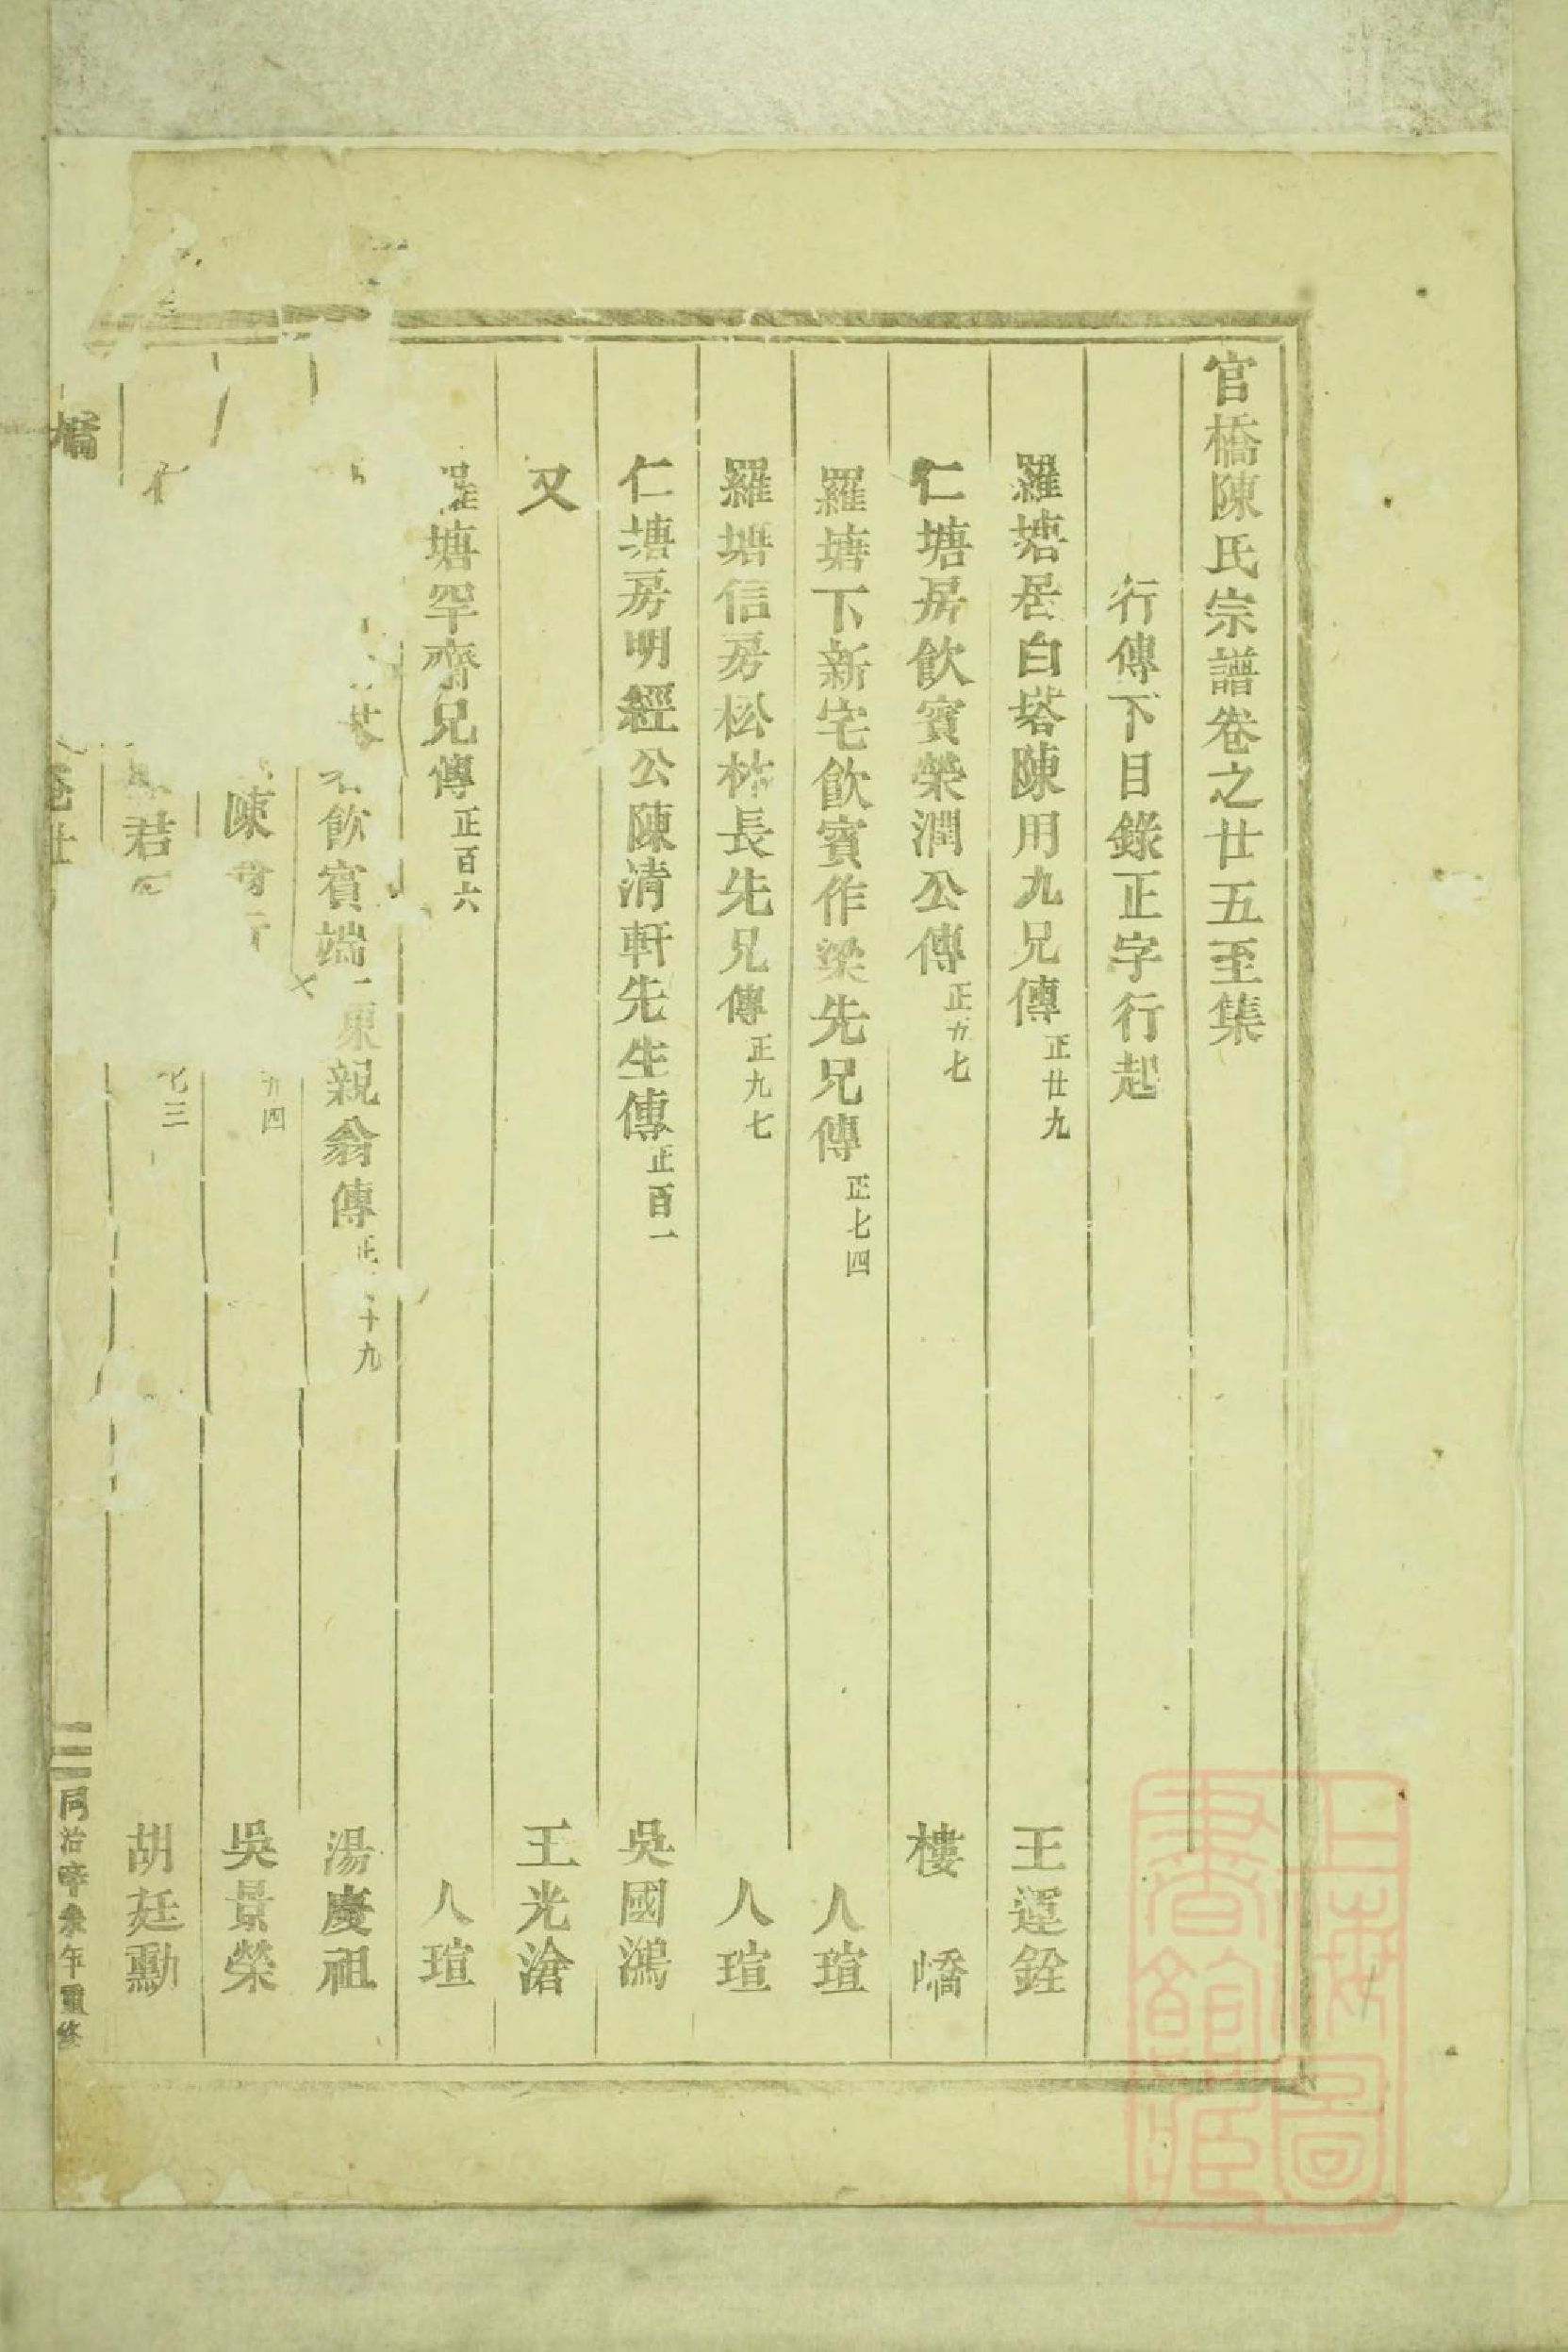 官橋陳氏宗譜卷之廿五至集
行傳下目錄正字行起
羅塘居白塔陳用九兄傳正廿九 王運銓
仁塘房飲賓榮潤公傳正五七 樓嶠
羅塘下新宅飲賓作梁先兄傳正七四 人瑄
羅塘信房松林長先兄傳正九七 人瑄
仁塘房明經公陳清軒先生傳正百一 吳國鴻
又 王光滄
羅塘罕齋兄傳正百六 人瑄
飲賓端東親翁傳正十九 湯慶祖
陳 四 吳景榮
君 三 胡廷勳
橋 同治年重修
上海圖書館藏